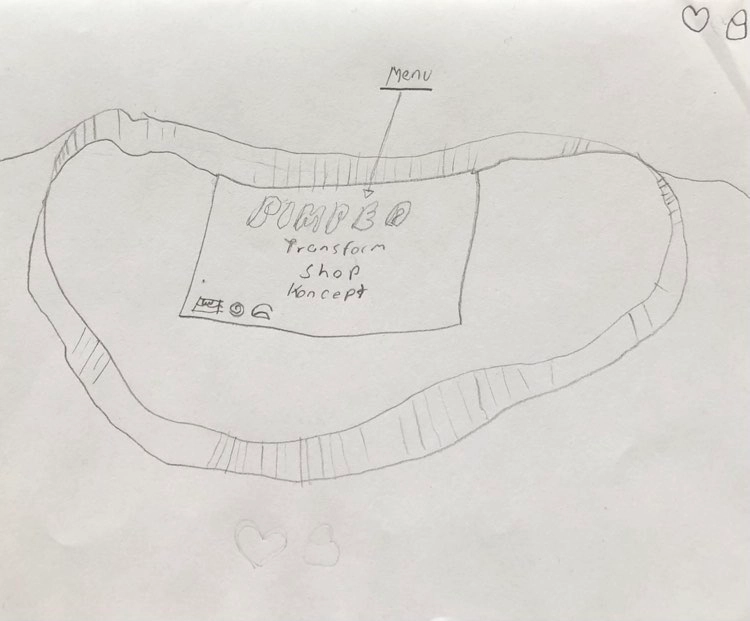 Menu
PIMPED
Transform
Shop
Koncept